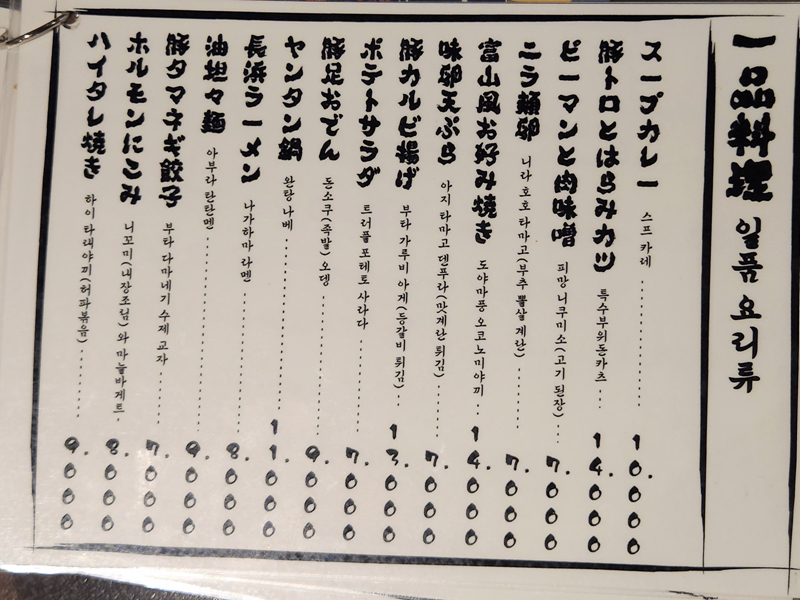 一品料理 일품 요리류
スープカレー 스프 카레 10.000
豚トロとはらみカツ 특수부위돈카츠 14.000
ピーマンと肉味噌 피망 니쿠미소(고기 된장) 7.000
ニラ頬卵 니라 호호 타마고(부추 뽈살 계란) 7.000
富山風お好み焼き 도야마풍 오코노미야끼 14.000
味卵天ぷら 아지 타마고 덴푸라(맛계란 튀김) 7.000
豚カルビ揚げ 부타 가루비 아게(등갈비 튀김) 13.000
ポテトサラダ 트러플 포테토 사라다 7.000
豚足おでん 돈소쿠(족발) 오뎅 9.000
ヤンタン鍋 완탕 나베 11.000
長浜ラーメン 나가하마 라멘 8.000
油坦々麺 아부라 탄탄멘 9.000
豚タマネギ餃子 부타 다마네기 수제 교자 7.000
ホルモンにこみ 니꼬미(내장조림)와 마늘바게트 8.000
ハイタレ焼き 하이 타래야끼(허파볶음) 9.000